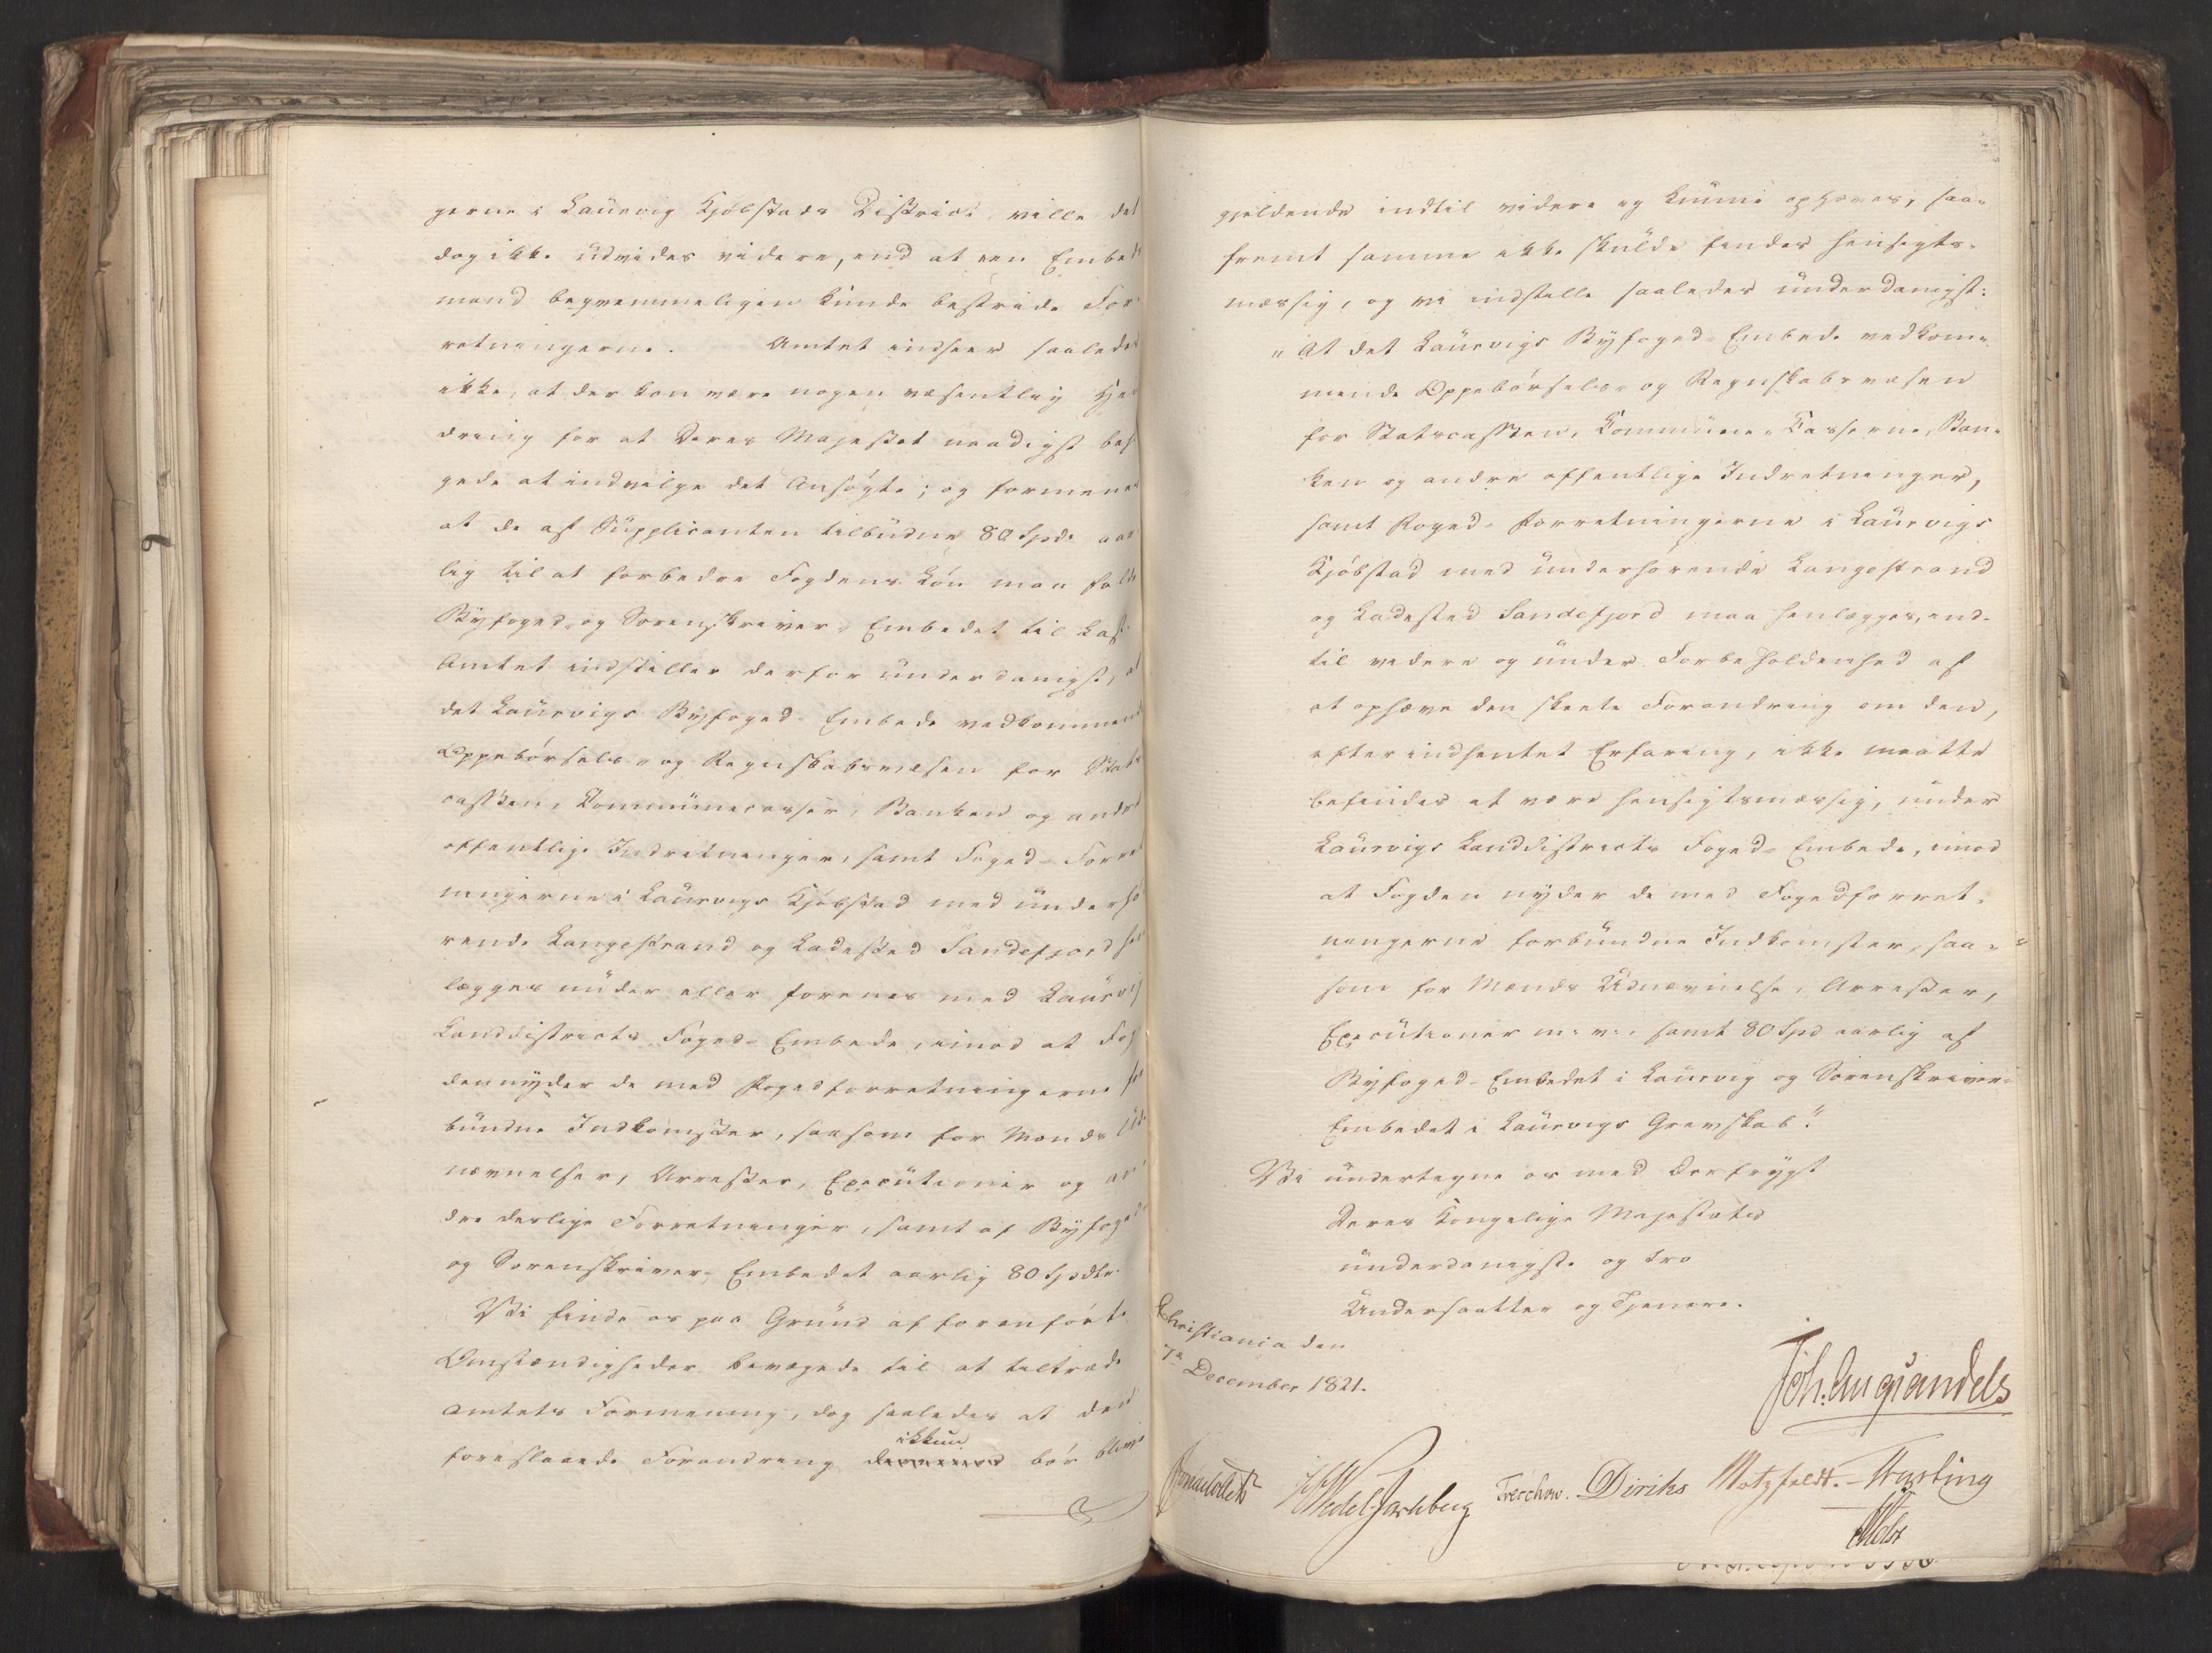 gerne i Laurvig Kjöbstads District ville det
dog ikke udvides videre, end at een Embeds
mand beqvemmeligen kunde bestride For
retningerne. Amtet indseer saaledes
ikke, at der kan være nogen væsentlig Hin
dring for at Deres Majestæt naadigst
gede at indvilge det Ansögte; og formener
at de af Supplicanten tilbudne 80 Spd: aar
lig til at forbedre Fogdens Lön maa falde
Byfoged- og Sorenskriver-Embedet til Last.
Amtet indstiller derfor underdanigst, at
det Laurvigs Byfoged-Embede vedkommende
Oppebörsels- og Regnskabsvæsen for Stats
cassen, Kommunecasser, Banken og andre
offentlige Indretninger, samt Foged-Forret
ningerne i Laurvigs Kjöbstad med underhö
rende Langestrand og Ladested Sandefjord hen
lægges under eller forenes med Laurvigs
Landdistricts Foged-Embede, imod at Fog
den nyder de med Fogedforretningerne for
bundne Indkomster, saasom for Mænds Ud
nævnelser, Arrester, Executioner og an
dre deslige Forretninger, samt af Byfoged
og Sorenskriver-Embedet aarlig 80 Spdlr.
Vi finde os paa Grund af foranförte
Omstændigheder bevægede til at tiltræde
Amtets Formening, dog saaledes at den
ikkun
foreslaaede Forandring bör blive
gjeldende indtil videre og kunne ophæves, saa-
fremt samme ikke skulde findes hensigts-
mæssig, og vi indstille saaledes underdanigst:
"At det Laurvigs Byfoged-Embede vedkom-
mende Oppebörsels- og Regnskabsvæsen
for Statscassen, Kommune-Casserne, Ban-
ken og andre offentlige Indretninger,
samt Foged-Forretningerne i Laurvigs
Kjöbstad med underhörende Langestrand
og Ladested Sandefjord maa henlægges, ind-
til videre og under Forbeholdenhed af
at ophæve den skeete Forandring om den,
efter indhentet Erfaring, ikke maatte
befindes at være hensigtsmæssig, under
Laurvigs Landdistricts Foged-Embede, imod
at Fogden nyder de med Fogedforret-
ningerne forbundne Indkomster, saa-
som for Mænds Udnævnelse, Arrester,
Executioner m: v:, samt 80 Spd aarlig af
Byfoged-Embedet i Laurvig og Sorenskriver-
Embedet i Laurvigs Grevskab."
Vi undertegne os med Ærefrygt
Deres Kongelige Majestæts
underdanigste og tro
Undersaatter og Tjenere.
Christiania den
7de December 1821.
Joh. Aug Sandels
Jonas Collett Wedel Jarlsberg Treschow. Diriks Motzfeldt. Fasting
Holst